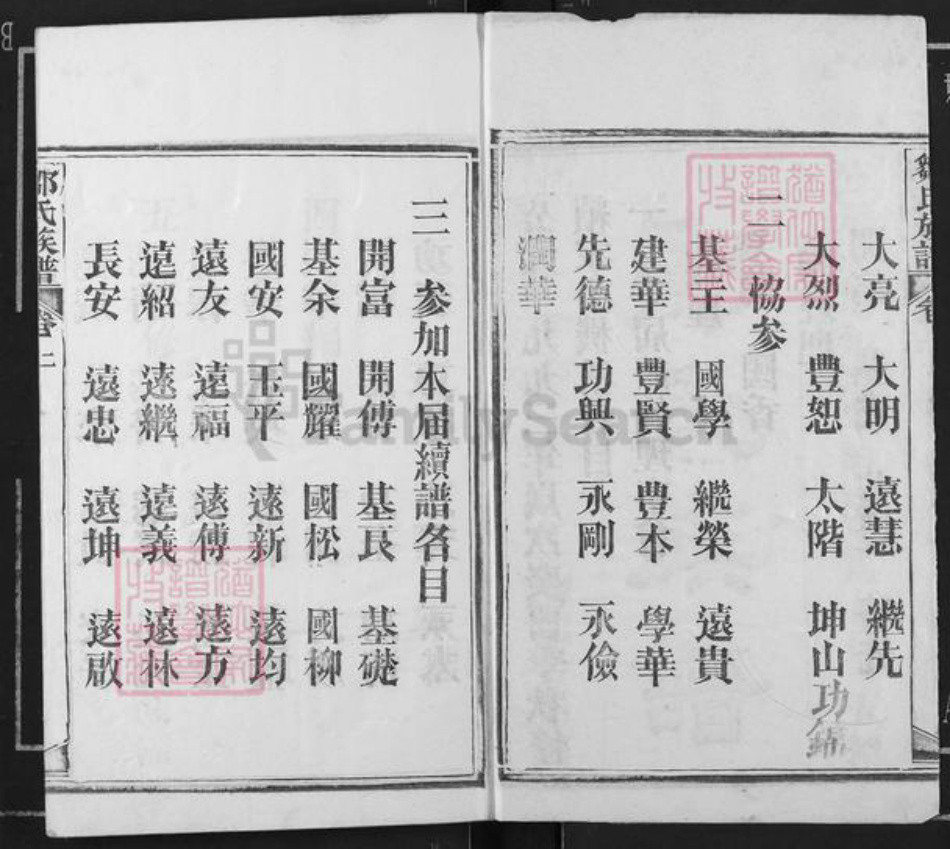 大亮 大明 遠慧 繼先
大烈 豐恕 太階 坤山 功鏽
二 協参
基王 國學 繼榮 遠貴
建華 豐賢 豊本 學華
先德 功興 永剛 永儉
潤華
三 参加本届續譜各目
開富 開傳 基良 基礎
基余 國耀 國松 國柳
國安 玉平 遠新 遠均
遠友 遠福 遠傅 遠方
遠紹 遠繼 遠義 遠林
長安 遠忠 遠坤 遠啟
鄒氏族譜 卷二
FamilySearch